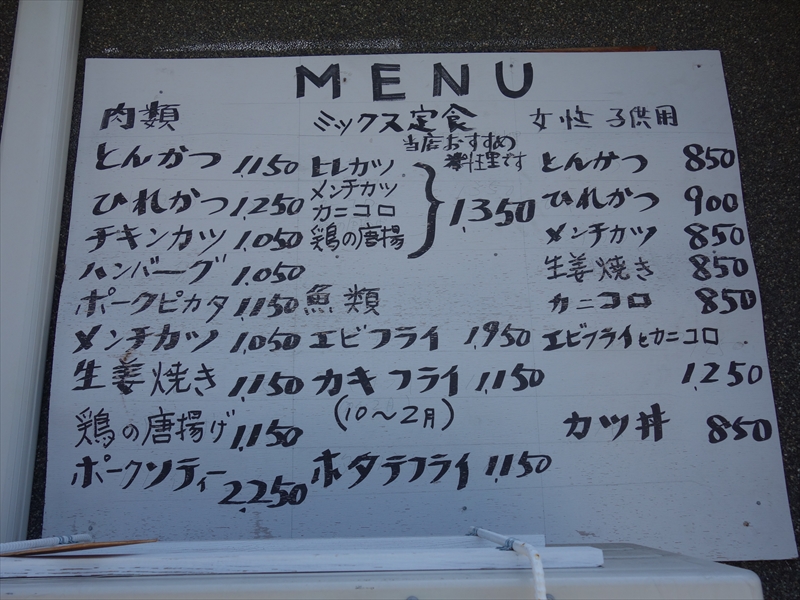 MENU
肉類
とんかつ 1,150
ひれかつ 1,250
チキンカツ 1,050
ハンバーグ 1,050
ポークピカタ 1,150
メンチカツ 1,050
生姜焼き 1,150
鶏の唐揚げ 1,150
ポークソティー 2,250
ミックス定食
当店おすすめ
料理です
ヒレカツ
メンチカツ
カニコロ
鶏の唐揚
1,350
魚類
エビフライ 1,950
カキフライ 1,150
(10〜2月)
ホタテフライ 1,150
女性 子供用
とんかつ 850
ひれかつ 900
メンチカツ 850
生姜焼き 850
カニコロ 850
エビフライとカニコロ
1,250
カツ丼 850